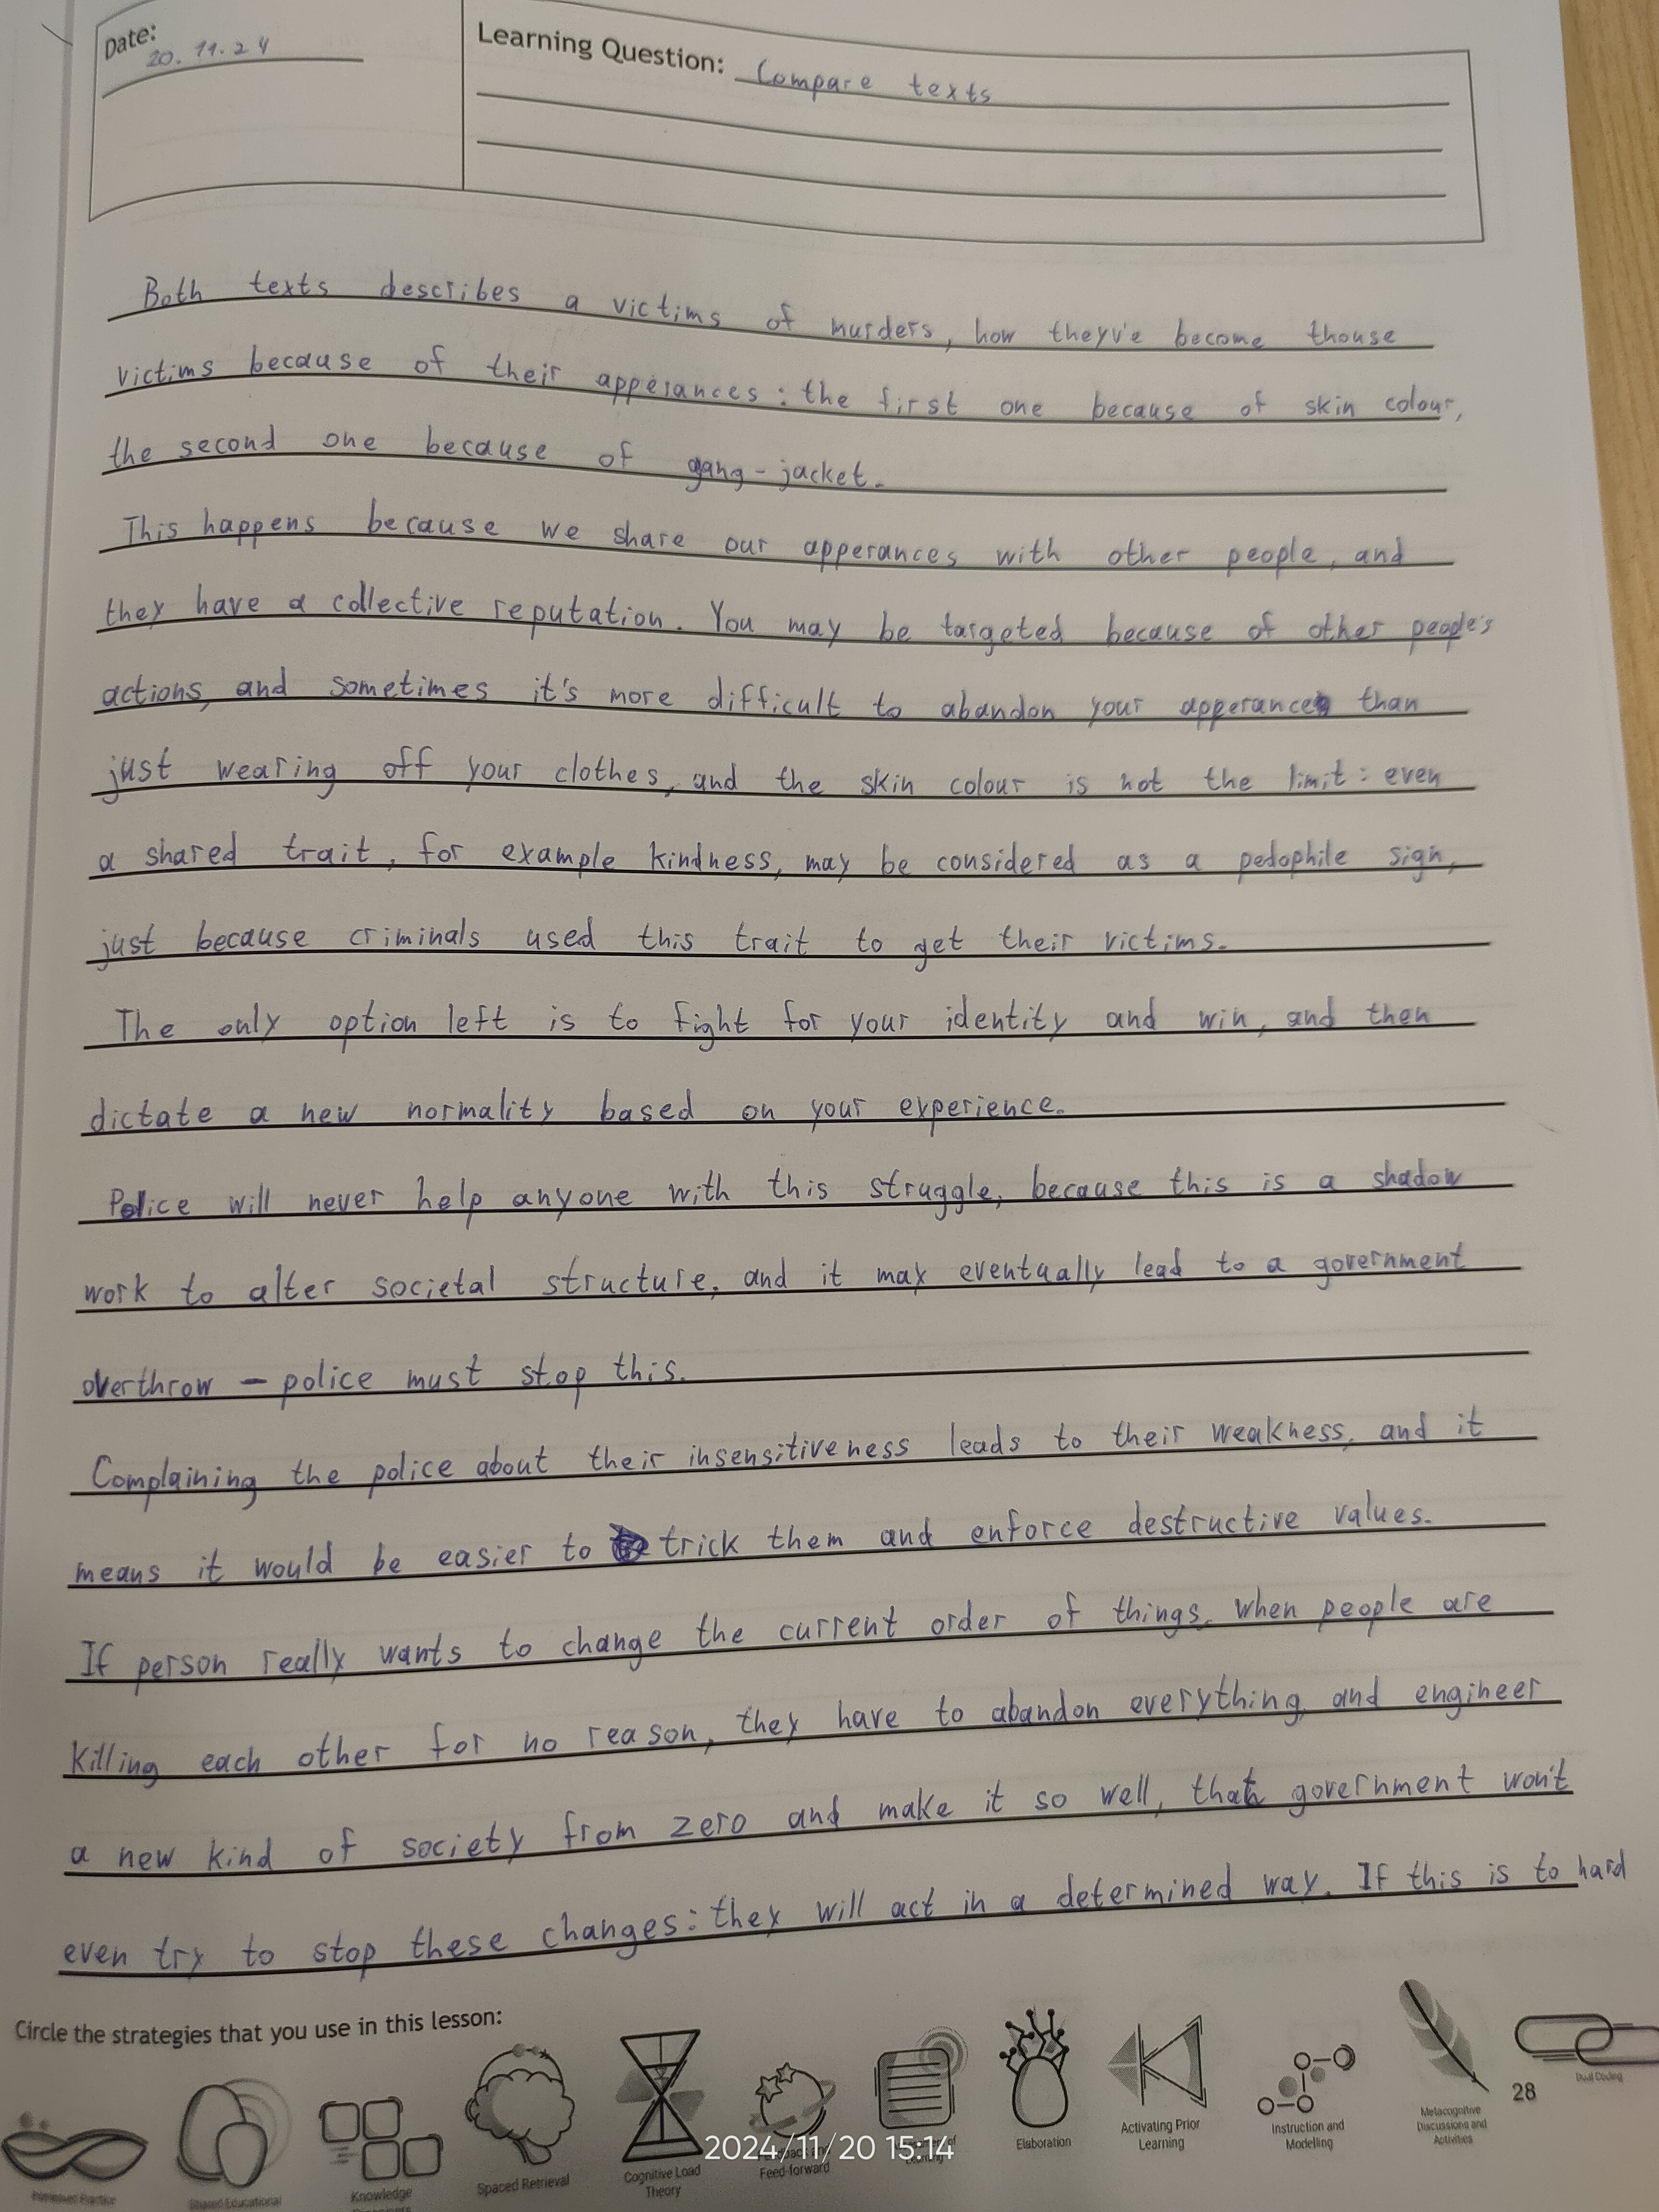 Date: 20.11.24
Learning Question: Compare texts
Both texts describes a victims of murders, how theyv'e become thouse
victims because of their apperances: the first one because of skin colour,
the second one because of gang-jacket.
This happens because we share our apperances with other people, and
they have a collective reputation. You may be targeted because of other people's
actions, and sometimes it's more difficult to abandon your apperance than
just wearing off your clothes, and the skin colour is not the limit: even
a shared trait, for example kindness, may be considered as a pedophile sign,
just because criminals used this trait to get their victims.
The only option left is to fight for your identity and win, and then
dictate a new normality based on your experience.
Police will never help anyone with this struggle, because this is a shadow
work to alter societal structure, and it may eventually lead to a government
overthrow - police must stop this.
Complaining the police about their insensitiveness leads to their weakness, and it
means it would be easier to trick them and enforce destructive values.
If person really wants to change the current order of things, when people are
killing each other for no reason, they have to abandon everything and engineer
a new kind of society from zero and make it so well, that government won't
even try to stop these changes: they will act in a determined way. If this is to hard
Circle the strategies that you use in this lesson:
28
Dual Coding
Metacognitive
Discussions and
Activities
Instruction and
Modelling
Activating Prior
Learning
Elaboration
Feed-forward
Cognitive Load
Theory
Spaced Retrieval
Knowledge
Shared Educational
Interleaved Practice
2024/11/20 15:14